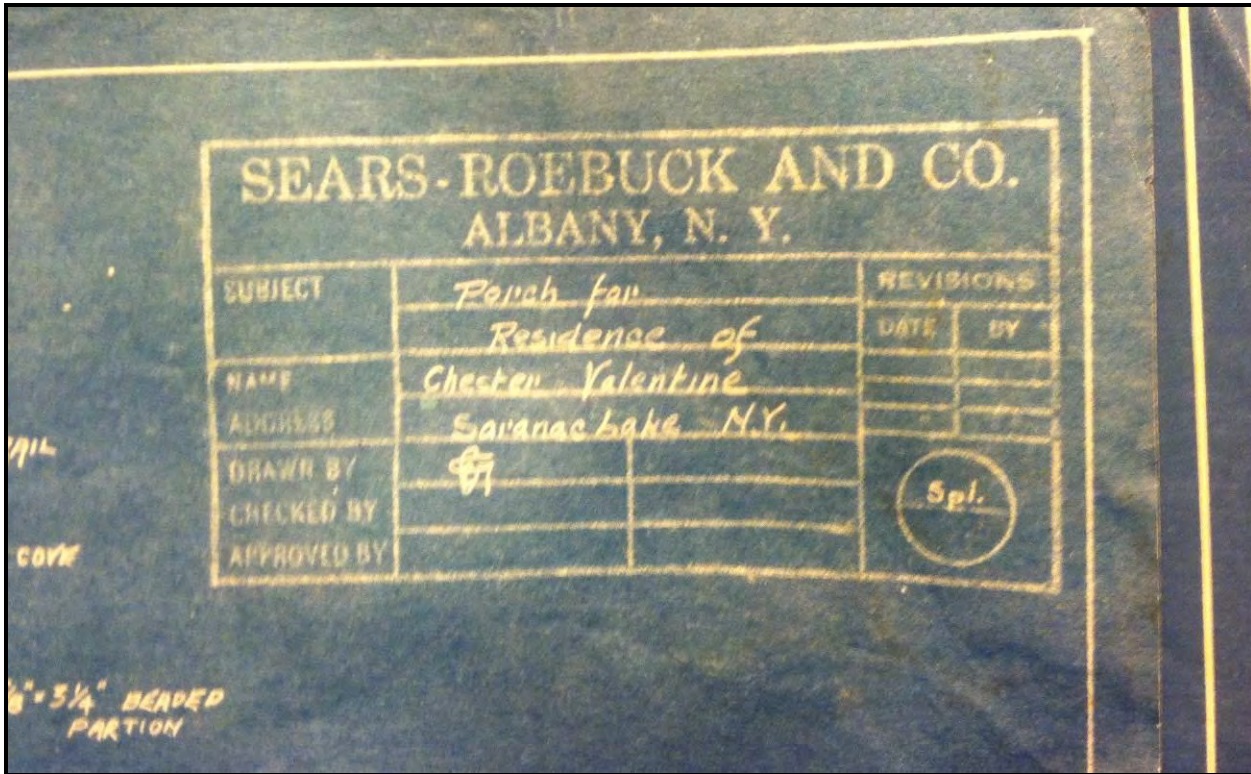 SEARS-ROEBUCK AND CO.
ALBANY, N. Y.
SUBJECT
Porch for
Residence of
REVISIONS
DATE BY
NAME
Chester Valentine
ADDRESS
Saranac Lake N.Y.
DRAWN BY
CHECKED BY
APPROVED BY
Spl.
AIL
COVE
/8" × 3 1/4" BEADED
PARTION